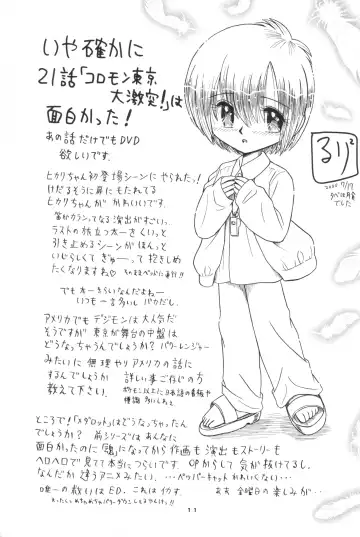 いや確かに
21話「コロモン東京
大激突!」は
面白かった!
あの話だけでもDVD
欲しいです。
ヒカリちゃん初登場シーンにやられた!
けだるそうに扉にもたれてる
ヒカリちゃんがかわいいです。
笛がカランってなる演出がすごいっ。
ラストの旅立つ
引き止めるシーンがほんっと
いじらしくてぎゅーって抱きしめ
たくなりますね
でも
いつも一言多いしバカだし。
アメリカでもデジモンは大人気だ
そうですが東京が舞台の中盤は
どうなっちゃうんでしょうか?パワーレンジャー
みたいに無理やりアメリカの話に
するんでしょうか 詳しい事ご存じの方
教えて下さい。
ポケモン以上に日本語の看板や
標識多いしねえ
ところで!「メダロット」はどうなっちゃったん
でしょうか? 前シリーズはあんなに
面白かったのに「魂」になってから作画も演出もストーリーも
ヘロヘロで見てて本当につらいです。OPからして気が抜けてるし。
なんだか違うアニメみたい。…ペッパーキャットかわいくない…
唯一の救いはED。これはイカす。
あぁ 金曜日の楽しみが…
るり²
2000 7/17
11